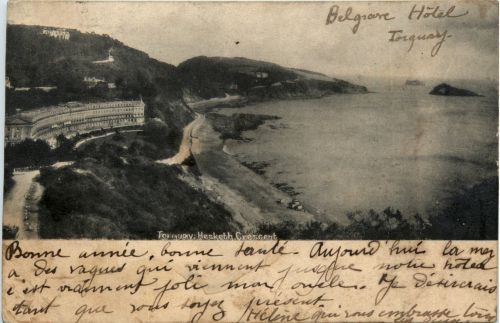 Belgrave Hôtel
Torquay
Torquay: Hesketh Crescent
Bonne année, bonne santé. Aujourd'hui la mer
a des vagues qui viennent jusque notre hôtel
c'est vraiment joli mon oncle. Je désirerais
tant que vous soyez présent
Hélène qui vous embrasse